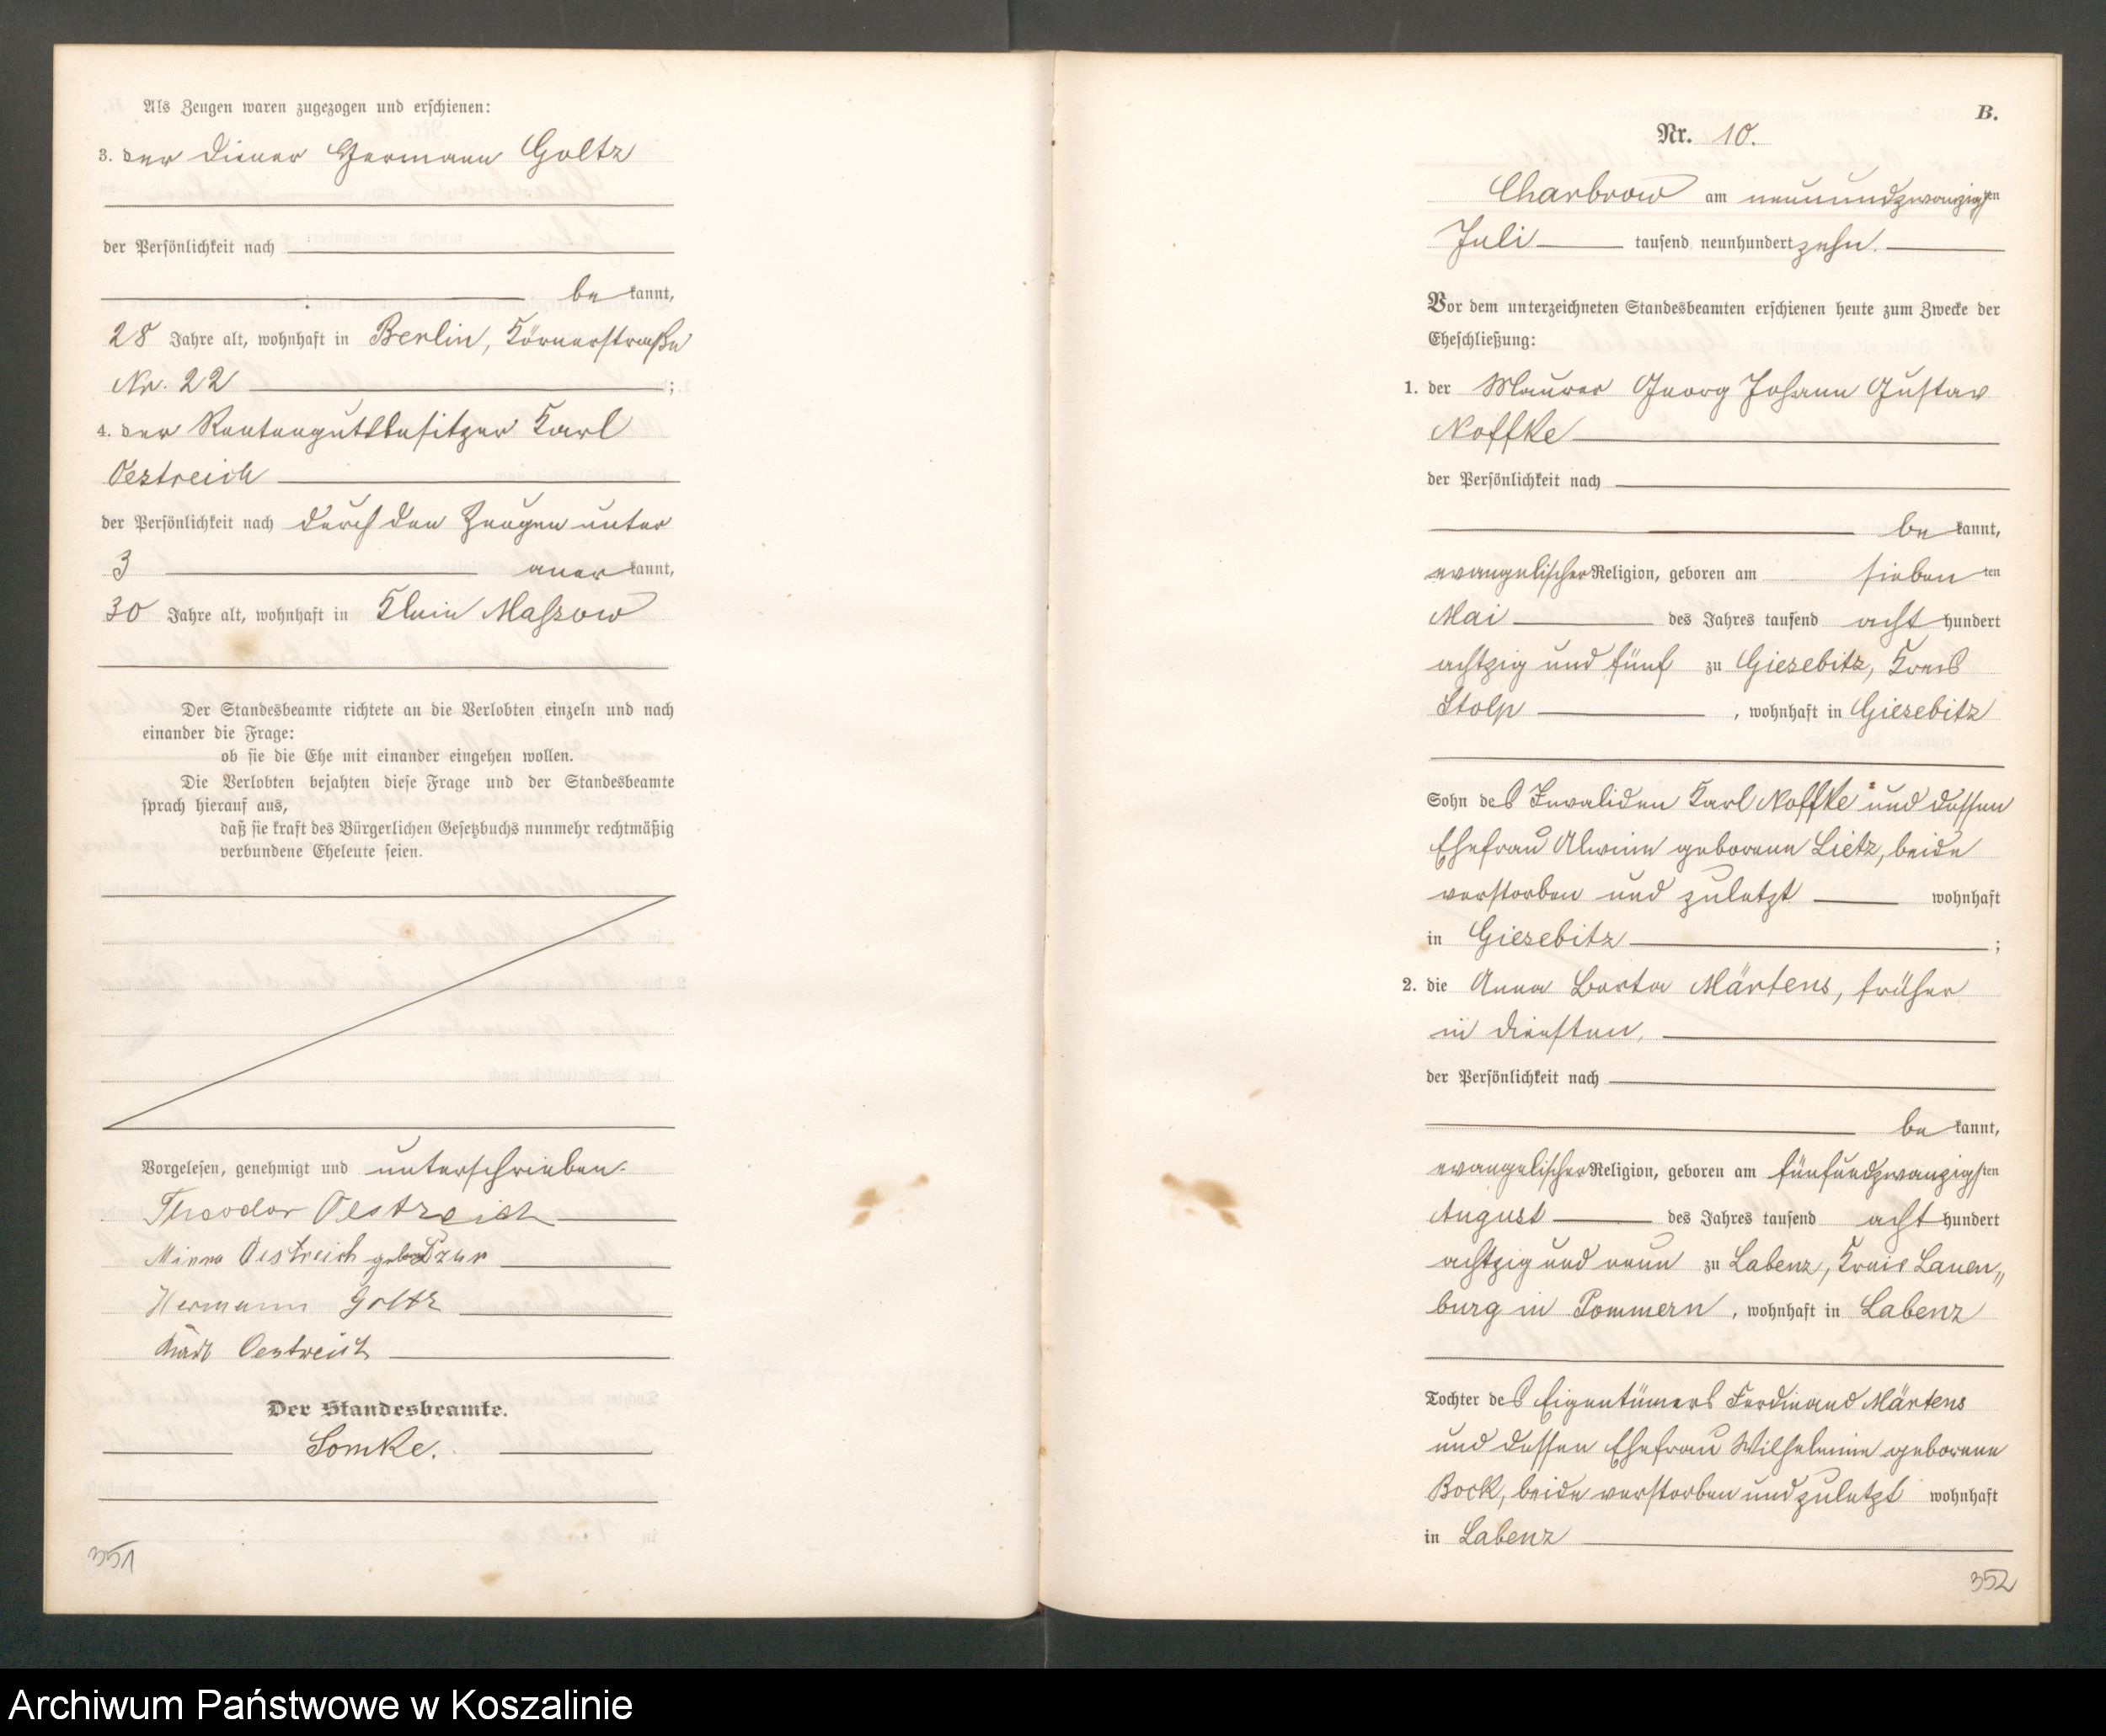 Als Zeugen waren zugezogen und erschienen:
3. der Diener Hermann Goltz
der Persönlichkeit nach
be kannt,
28 Jahre alt, wohnhaft in Berlin, Körnerstraße
Nr. 22 ;
4. der Rentengutsbesitzer Karl
Oestreich
der Persönlichkeit nach durch den Zeugen unter
3 aner kannt,
30 Jahre alt, wohnhaft in Klein Massow
Der Standesbeamte richtete an die Verlobten einzeln und nach
einander die Frage:
ob sie die Ehe mit einander eingehen wollen.
Die Verlobten bejahten diese Frage und der Standesbeamte
sprach hierauf aus,
daß sie kraft des Bürgerlichen Gesetzbuchs nunmehr rechtmäßig
verbundene Eheleute seien.
Vorgelesen, genehmigt und unterschrieben.
Theodor Oestreich
Minna Oestreich geb.
Hermann Goltz
Karl Oestreich
Der Standesbeamte.
Lomke.
351
B.
Nr. 10.
Charbrow am neunundzwanzigsten
Juli tausend neunhundert zehn.
Vor dem unterzeichneten Standesbeamten erschienen heute zum Zwecke der
Eheschließung:
1. der Maurer Georg Johann Gustav
Noffke
der Persönlichkeit nach
be kannt,
evangelischer Religion, geboren am sieben ten
Mai des Jahres tausend acht hundert
achtzig und fünf zu Giesebitz, Kreis
Stolp , wohnhaft in Giesebitz
Sohn des Invaliden Karl Noffke und dessen
Ehefrau Alwine geborene Lietz, beide
verstorben und zuletzt wohnhaft
in Giesebitz ;
2. die Anna Berta Märtens, früher
in Diensten,
der Persönlichkeit nach
be kannt,
evangelischer Religion, geboren am fünfundzwanzigsten
August des Jahres tausend acht hundert
achtzig und neun zu Labenz, Kreis Lauen„
burg in Pommern, wohnhaft in Labenz
Tochter des Eigentümers Ferdinand Märtens
und dessen Ehefrau Wilhelmine geborene
Bock, beide verstorben und zuletzt wohnhaft
in Labenz
352
Archiwum Państwowe w Koszalinie